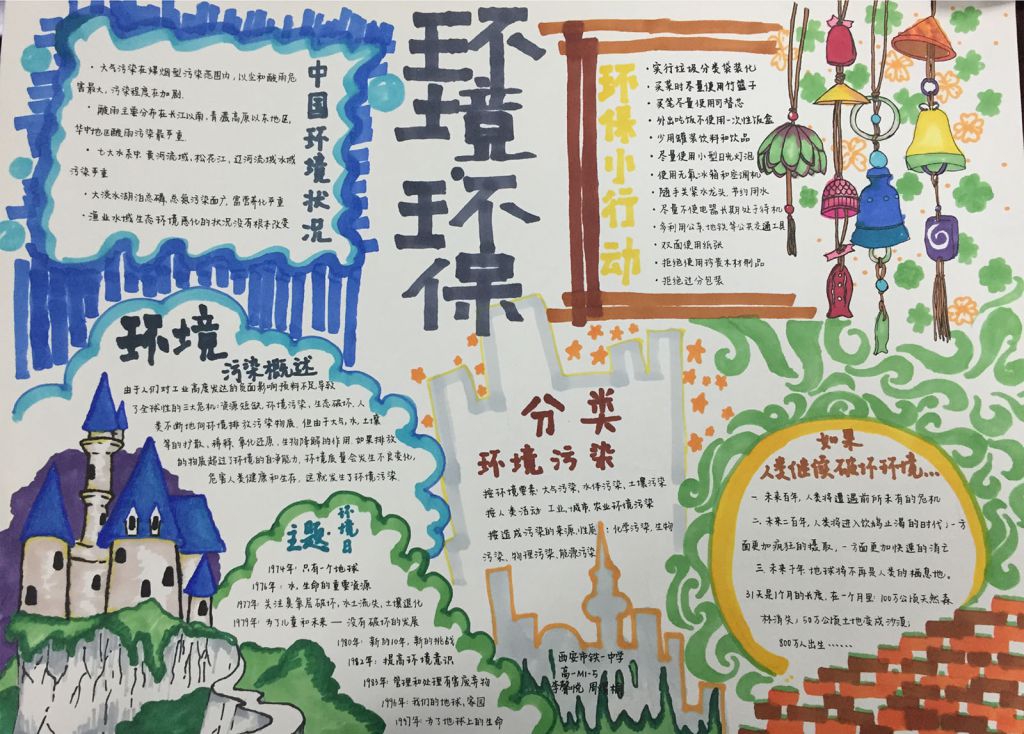 环境环保
中国环境状况
· 大气污染在煤烟型污染范围内，以尘和酸雨危
害最大，污染程度在加剧.
· 酸雨主要分布在长江以南，青藏高原以东地区，
华中地区酸雨污染最严重.
· 七大水系中 黄河流域，松花江，辽河流域水域
污染严重
· 大淡水湖泊总磷，总氮污染面广，富营养化严重
· 渔业水域生态环境恶化的状况没有根本改变
环保小行动
· 实行垃圾分类袋装化
· 买菜时尽量使用竹篮子
· 买笔尽量使用可替芯
· 外出吃饭不使用一次性饭盒
· 少用罐装饮料和饮品
· 尽量使用小型日光灯泡
· 使用无氟冰箱和空调机
· 随手关紧水龙头，节约用水
· 尽量不使电器长期处于待机
· 多利用公车，地铁等公共交通工具
· 双面使用纸张
· 拒绝使用珍贵木材制品
· 拒绝过分包装
环境
污染概述
由于人们对工业高度发达的负面影响预料不足，导致
了全球性的三大危机：资源短缺，环境污染，生态破坏，人
类不断地向环境排放污染物质，但由于大气，水，土壤
等的扩散，稀释，氧化还原，生物降解的作用，如果排放
的物质超过了环境的自净能力，环境质量会发生不良变化，
危害人类健康和生存，这就发生了环境污染.
环境日
主题
1974年：只有一个地球
1976年：水，生命的重要资源
1977年：关注臭氧层破坏，水土流失，土壤退化
1979年：为了儿童和未来——没有破坏的发展
1980年：新的10年，新的挑战
1982年：提高环境意识
1983年：管理和处理有害废弃物
1996年：我们的地球，家园
1997年：为了地球上的生命
分类
环境污染
按环境要素：大气污染，水体污染，土壤污染
按人类活动：工业，城市，农业环境污染
按造成污染的来源，性质：化学污染，生物
污染，物理污染，能源污染
西安市铁一中学
高一M1-5
李馨悦 周
如果
人类继续破坏环境...
一.未来百年，人类将遭遇前所未有的危机
二.未来二百年，人类将进入饮鸩止渴的时代，一方
面更加疯狂的攫取，一方面更加快速的消亡
三.未来千年 地球将不再是人类的栖息地。
31天是1个月的长度，在一个月里：100万公顷天然森
林消失，50万公顷土地变成沙漠；
800万人出生......